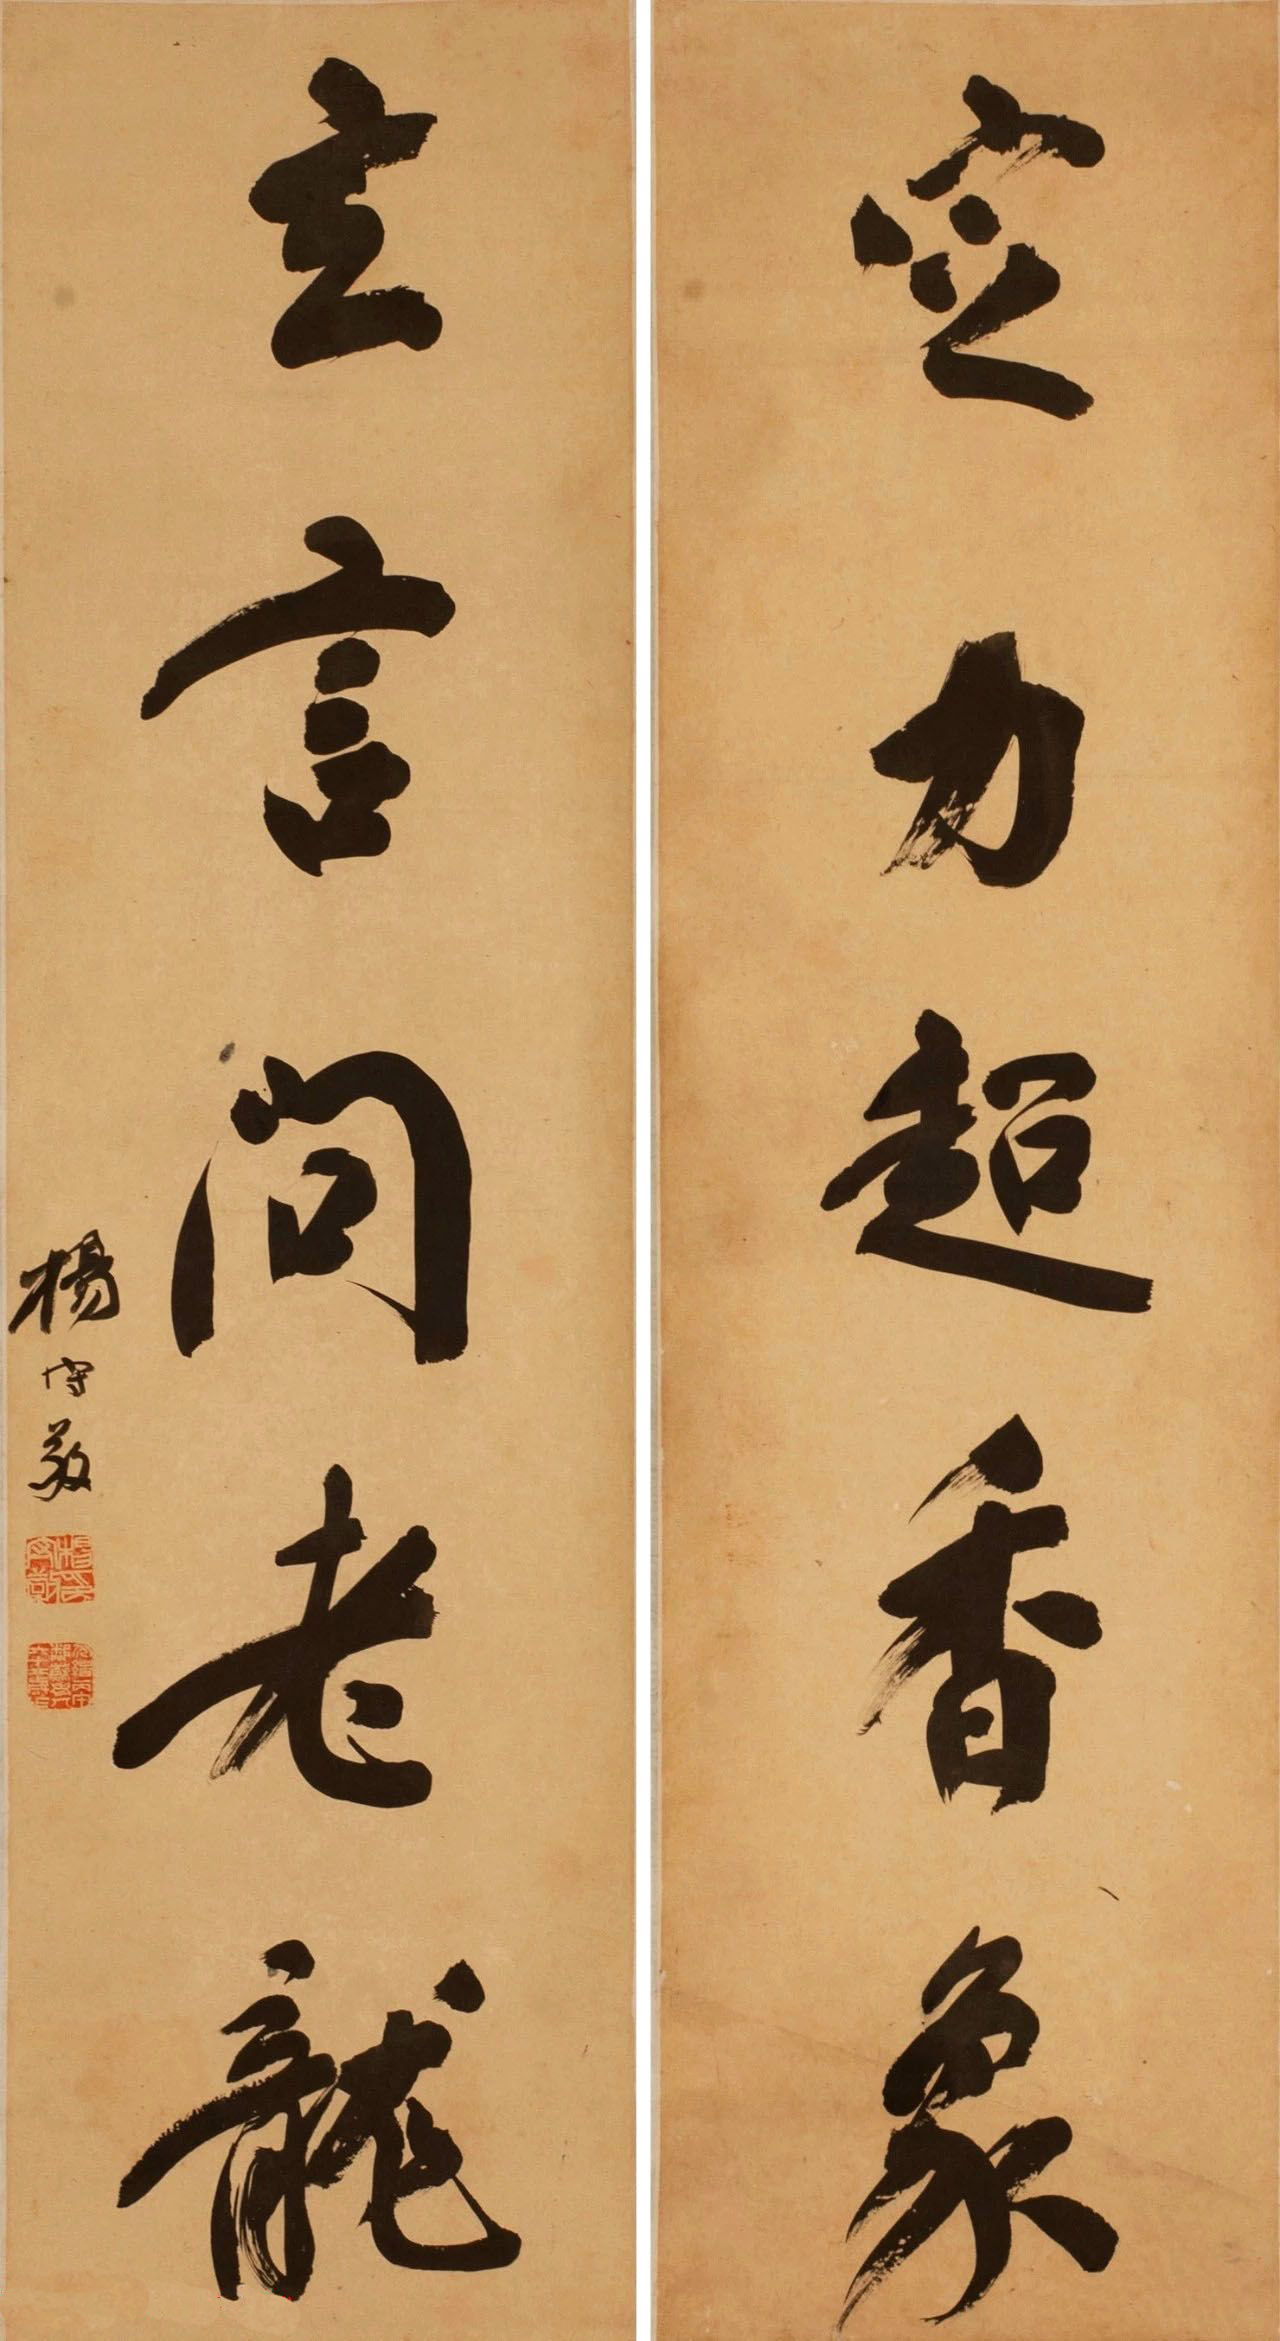 定力超香象
玄言問老龍
楊守敬